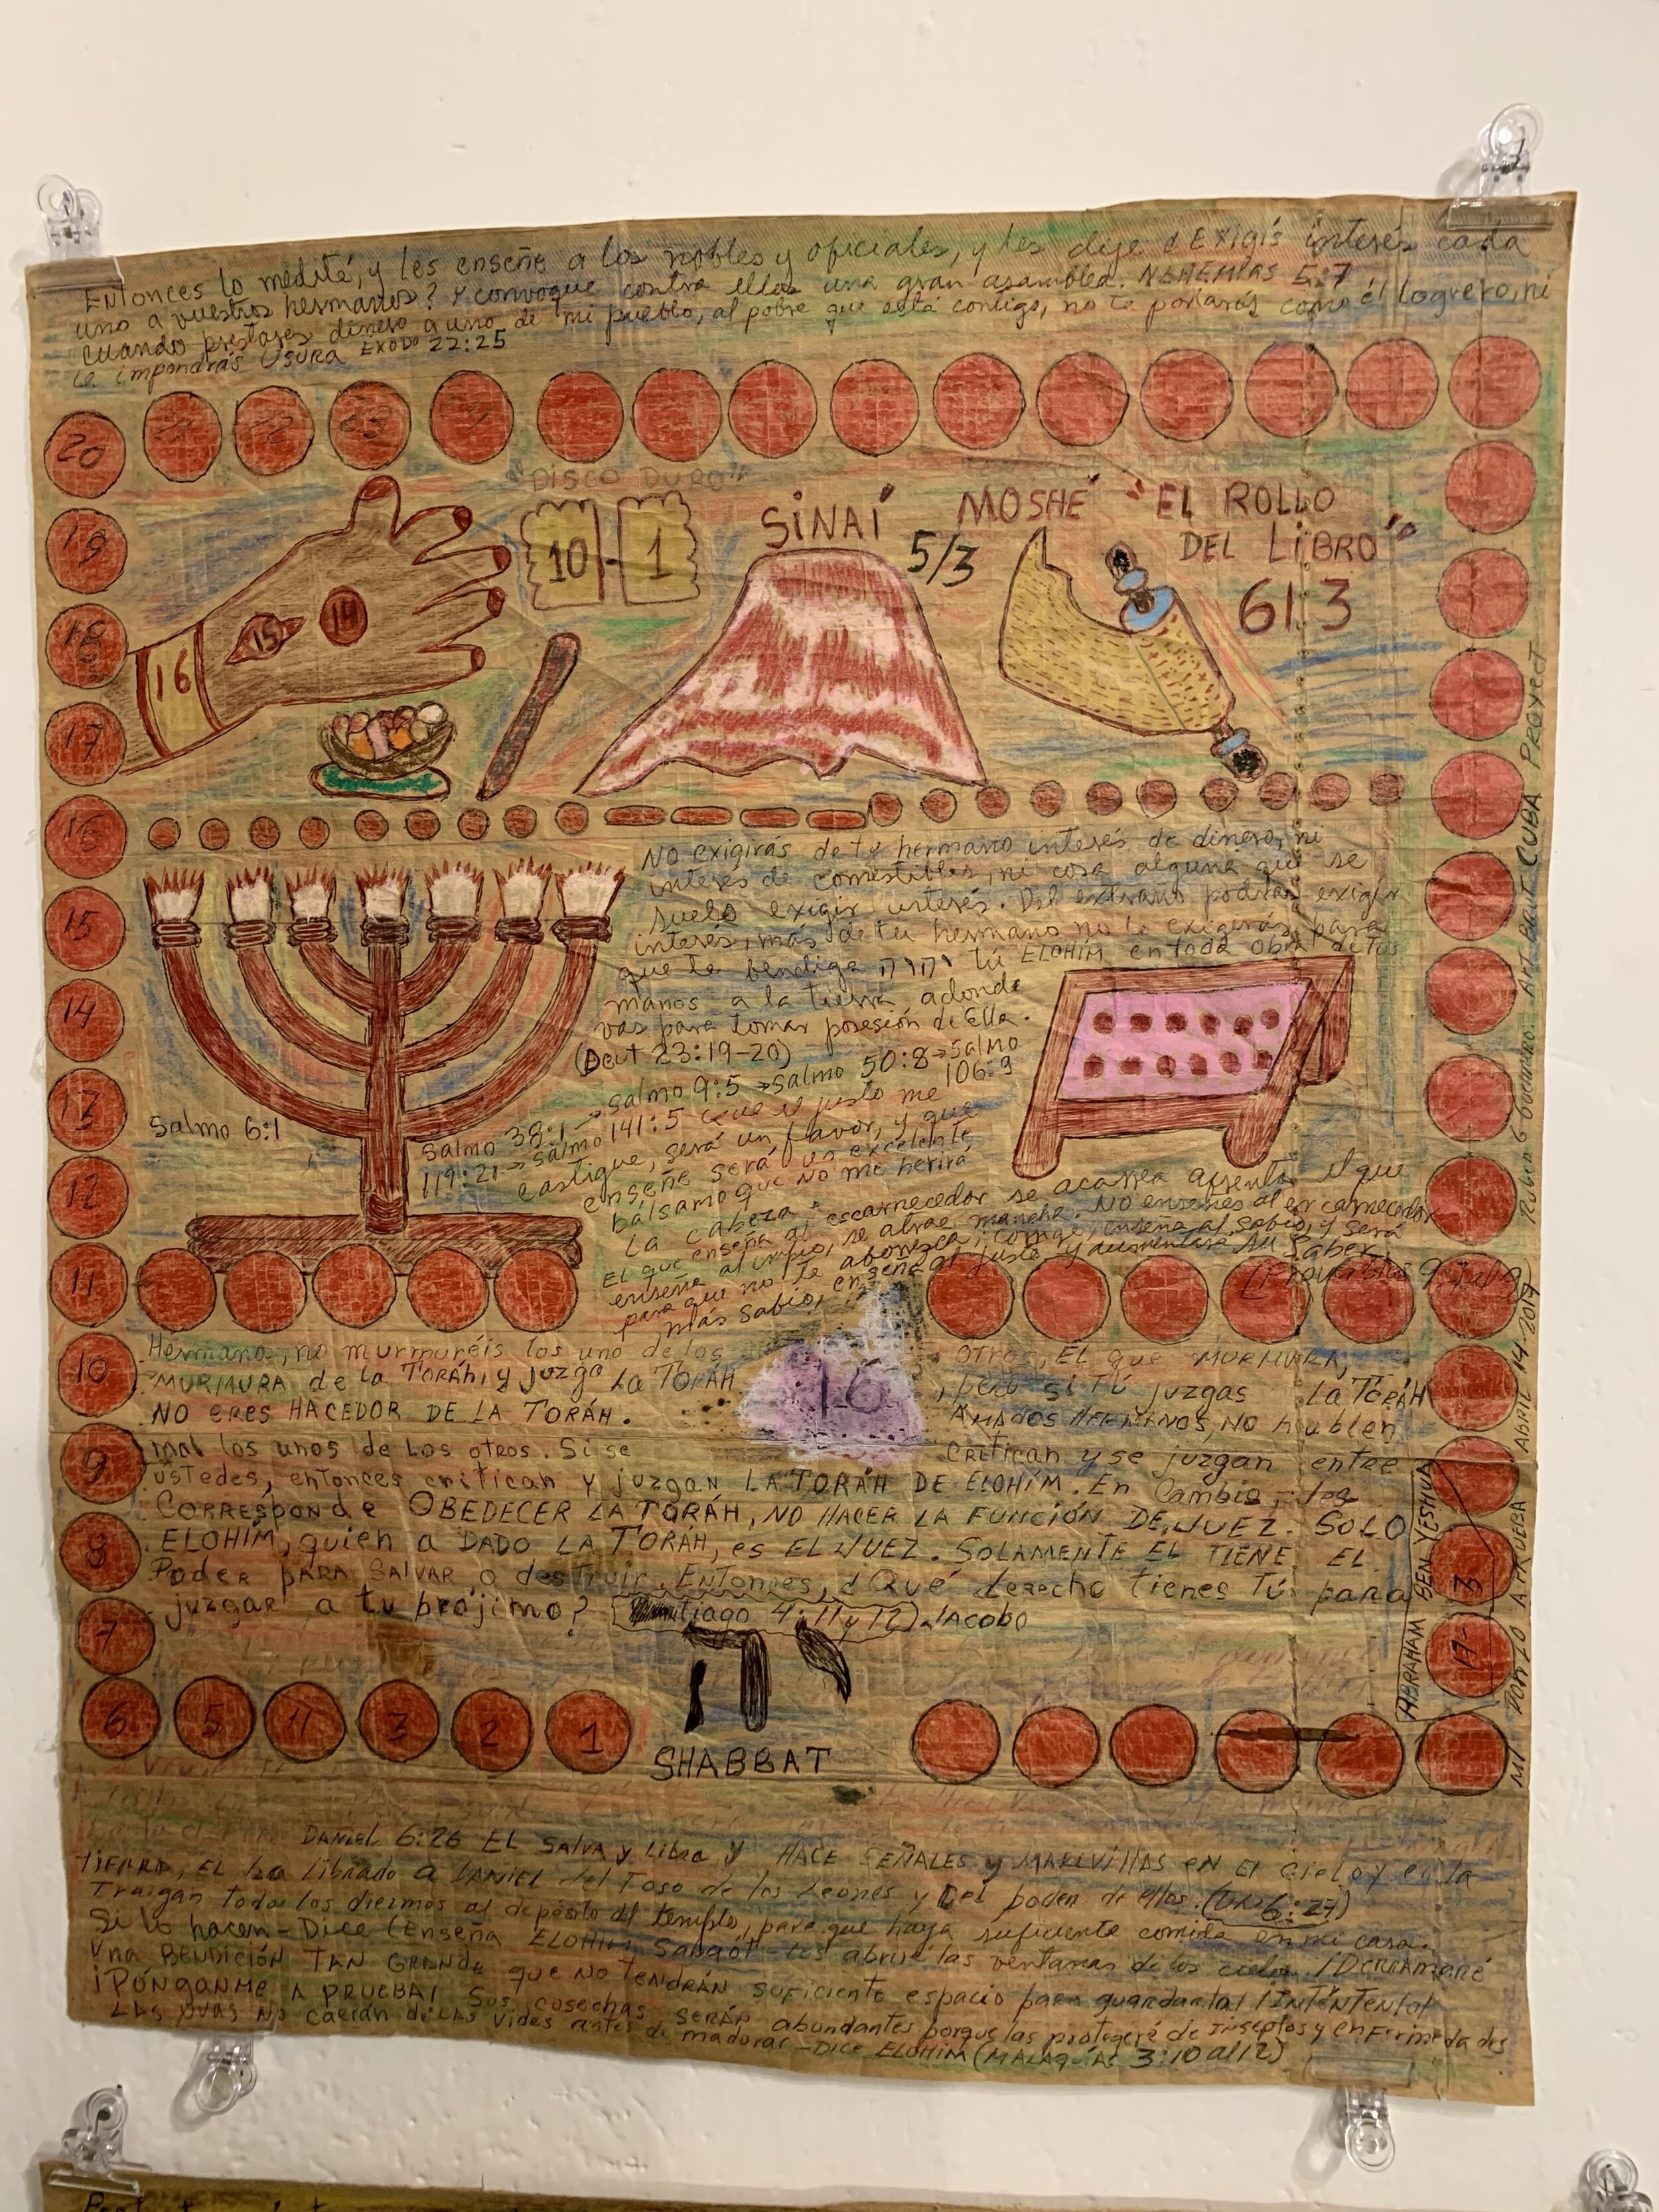 Entonces lo medité, y les enseñe a los nobles y oficiales, y les dije ¿Exigís interés cada
uno a vuestros hermanos? Y convoque contra ellos una gran asamblea. NEHEMÍAS 5:7
Cuando prestares dinero a uno de mi pueblo, al pobre que está contigo, no te portarás como él logrero, ni
le impondrás Usura EXODO 22:25
20
"DISCO DURO"
SINAÍ
MOSHÉ
"EL ROLLO
DEL LIBRO"
10 - 1
5/3
613
19
18
15
14
16
17
16
No exigirás de tu hermano interés de dinero, ni
interés de comestibles, ni cosa alguna que se
suele exigir interés. Del extraño podrás exigir
interés, más de tu hermano no lo exigirás, para
que te bendiga יהוה tu ELOHÍM en toda obra de tus
manos a la tierra, adonde
vas para tomar posesión de Ella.
(Deut 23:19-20)
15
14
13
Salmo 6:1
Salmo 38:1 → Salmo 9:5 → Salmo 50:8 → Salmo 106:9
119:21 → Salmo 141:5 Que el justo me
castigue, será un favor, y que
enseñe será un excelente
bálsamo que No me herirá
La cabeza
12
El que enseña al escarnecedor se acarrea afrenta, el que
enseña al impío, se atrae mancha. NO enseñes al escarnecedor
para que no te aborrezca; corrige, enseña al sabio, y será
más sabio, enseña al justo y aumentará su saber.
11
10
Hermanos, no murmuréis los uno de los otros, EL que MURMURA,
MURMURA de la TORÁH, y juzga LA TORÁH, pero si TÚ juzgas LA TORÁH
NO ERES HACEDOR DE LA TORÁH. AMADOS HERMANOS, NO hablen
16
9
mal los unos de los otros. Si se critican y se juzgan entre
ustedes, entonces critican y juzgan LA TORÁH DE ELOHÍM. En Cambio, les
CORRESPONDE OBEDECER LA TORÁH, NO HACER LA FUNCIÓN DE JUEZ. SOLO
8
ELOHÍM, quien a DADO LA TORÁH, es EL JUEZ. SOLAMENTE EL TIENE EL
Poder PARA SALVAR o destruir. Entonces, ¿Qué derecho tienes TÚ para
juzgar a tu prójimo? tiago 4:11 y 12). IACOBO
7
יה
6 5 4 3 2 1
SHABBAT
ABRAHAM BEN YESHUA
3
17-
MI PONLO A PRUEBA ABRIL 14-2017 Ruben G Guerrero. ART BRUT CUBA PROYECT
DANIEL 6:26 EL SALVA y Libra y HACE SEÑALES y MARAVILLAS EN EL cielo y en la
TIERRA, EL ha librado a DANIEL del Foso de los Leones y Del poder de ellos. 6:27)
Traigan todos los diezmos al depósito del templo, para que haya suficiente comida en mi casa.
Si lo hacen - Dice (Enseña ELOHIM Sabaot - les abriré las ventanas de los cielos. ¡DERRAMARÉ
una BENDICIÓN TAN GRANDE que NO TENDRÁN SUFICIENTE espacio para guardarla! ¡INTÉNTENLO!
¡PÓNGANME A PRUEBA! Sus cosechas SERÁN abundantes porque las protegeré de inseptos y enfermedades
LAS uvas NO caerán de LAS vides antes de madurar - DICE ELOHIM (MALAQUÍAS 3:10 al 12)